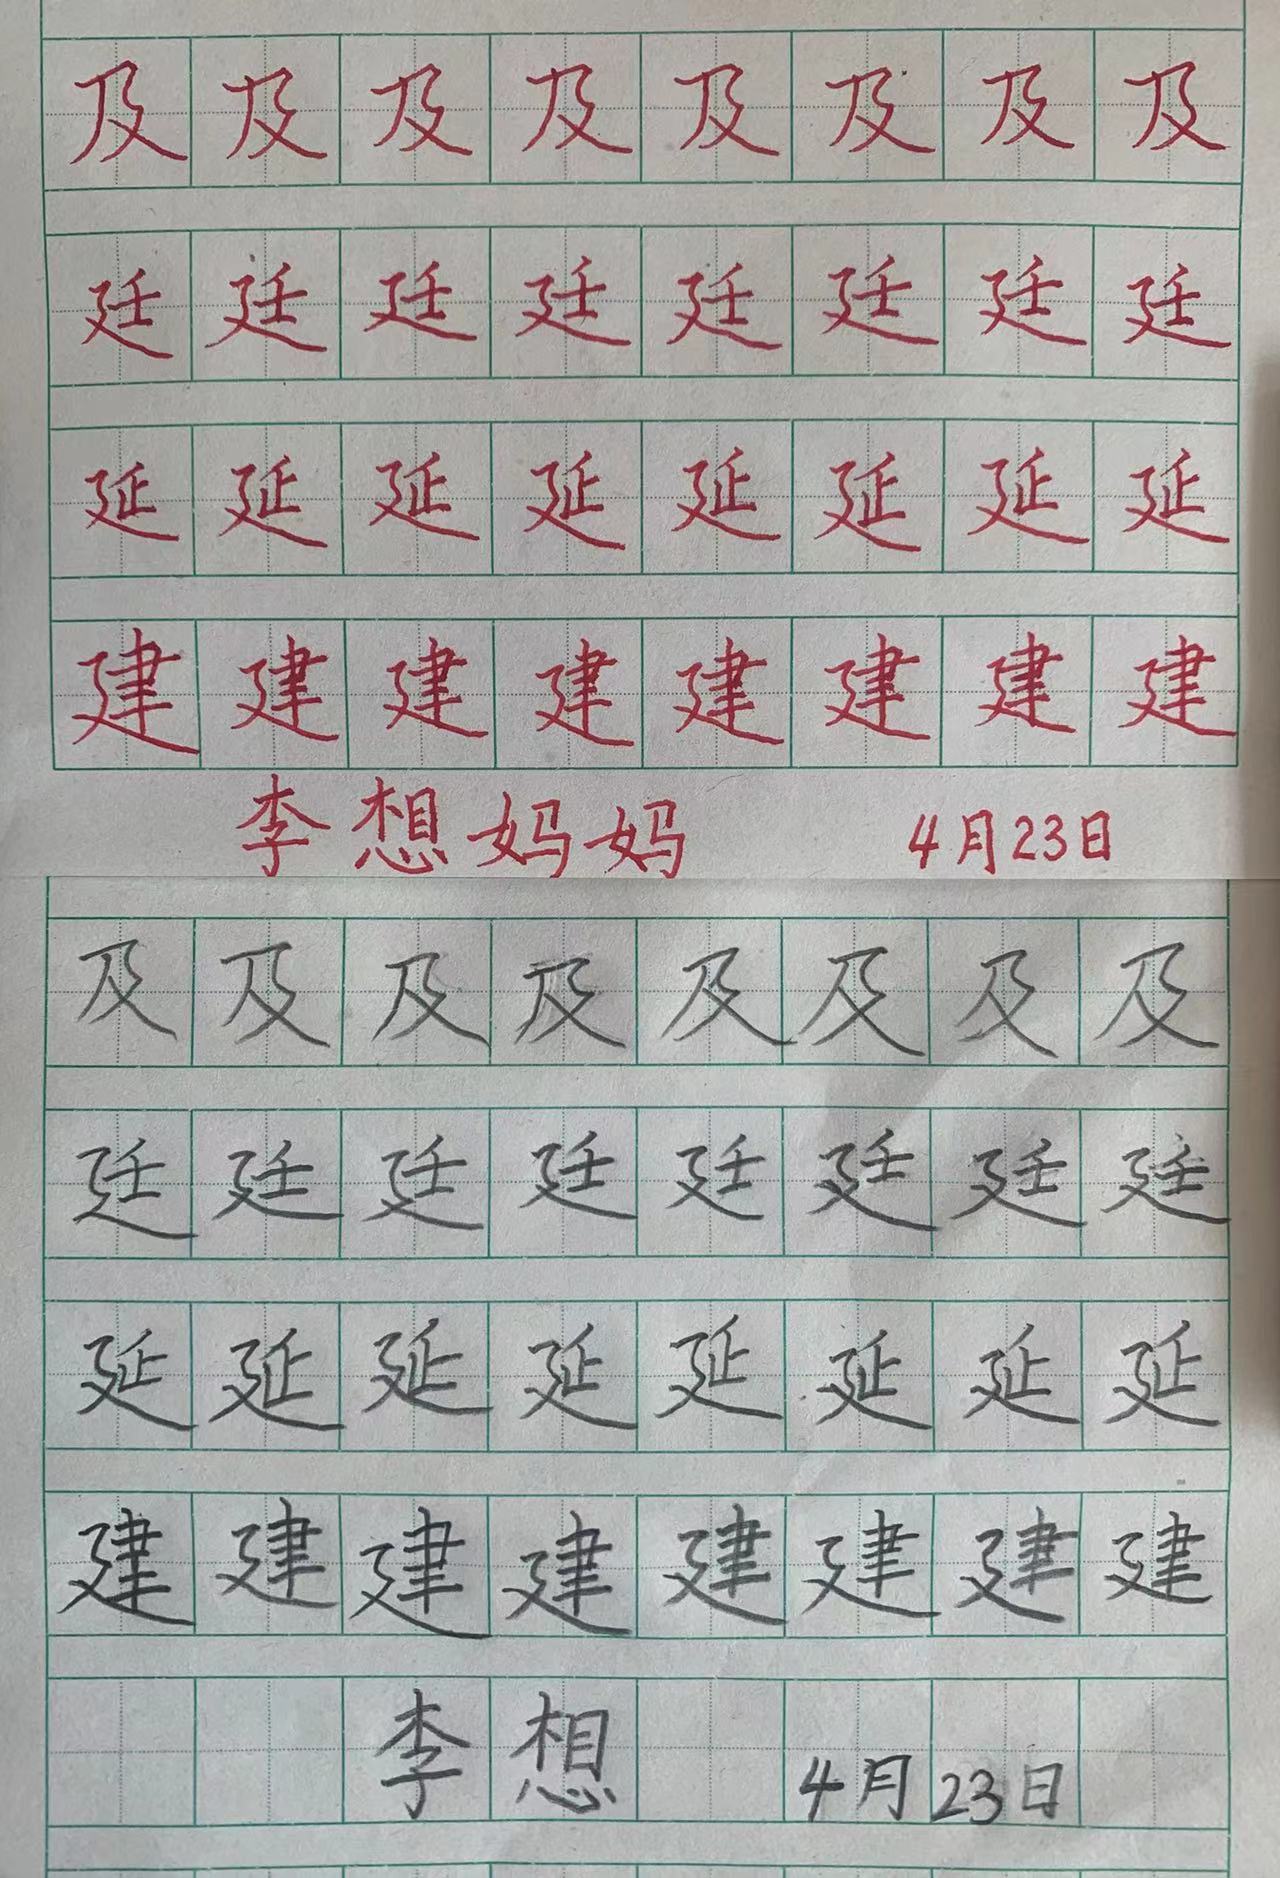 及及及及及及及及
廷廷廷廷廷廷廷廷
延延延延延延延延
建建建建建建建建
李想妈妈 4月23日
及及及及及及及及
廷廷廷廷廷廷廷廷
延延延延延延延延
建建建建建建建建
李想 4月23日